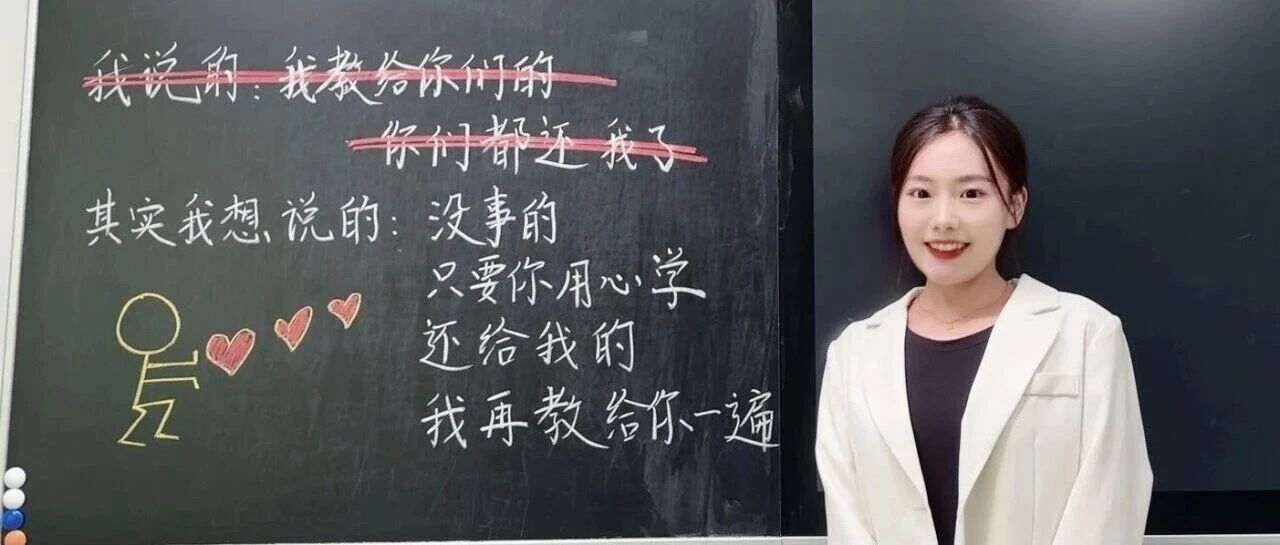 我说的：我教给你们的
你们都还我了
其实我想说的：没事的
只要你用心学
还给我的
我再教给你一遍